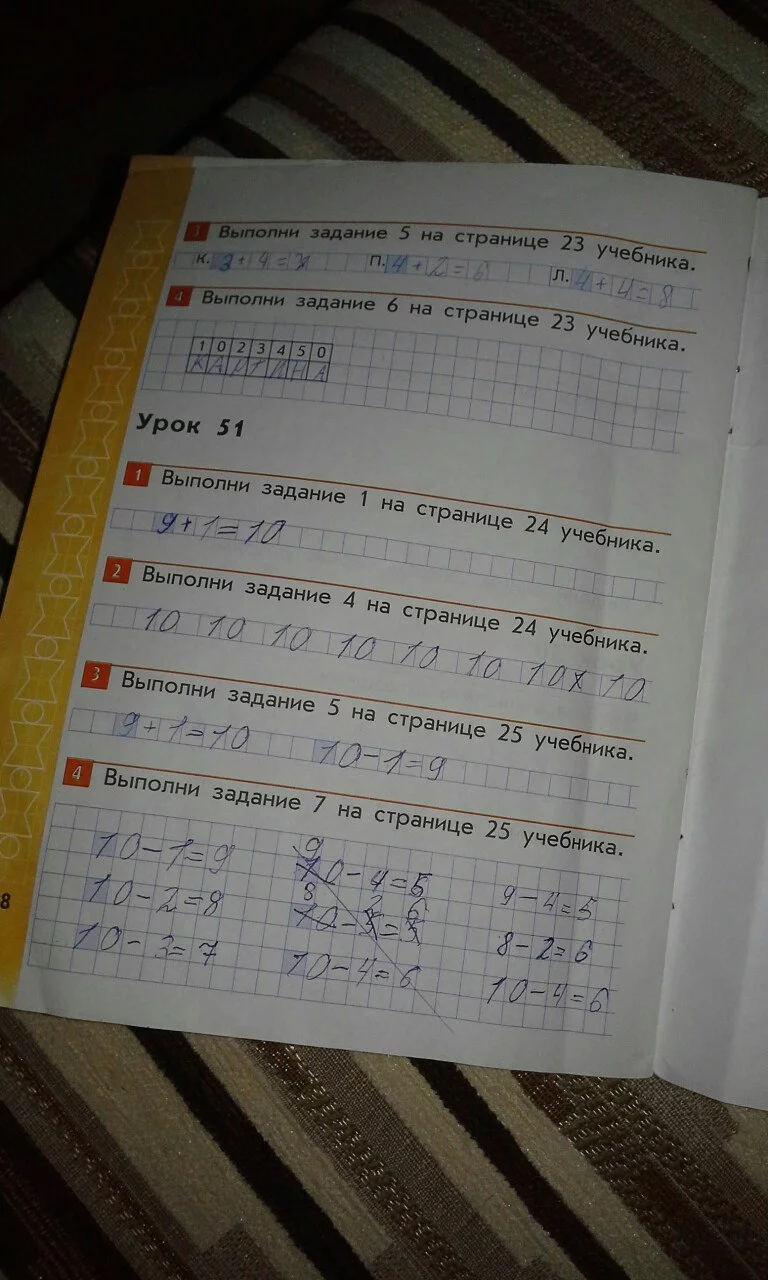 3 Выполни задание 5 на странице 23 учебника.
К. 3+4=7 П. 4+2=6 Л. 4+4=8
4 Выполни задание 6 на странице 23 учебника.
1 0 2 3 4 5 0
К А Р Т И Н А
Урок 51
1 Выполни задание 1 на странице 24 учебника.
9+1=10
2 Выполни задание 4 на странице 24 учебника.
10 10 10 10 10 10 10 10
3 Выполни задание 5 на странице 25 учебника.
9+1=10 10-1=9
4 Выполни задание 7 на странице 25 учебника.
10-1=9 10-4=5 9-4=5
10-2=8 8-2=6
10-3=7 10-4=6 10-4=6
8